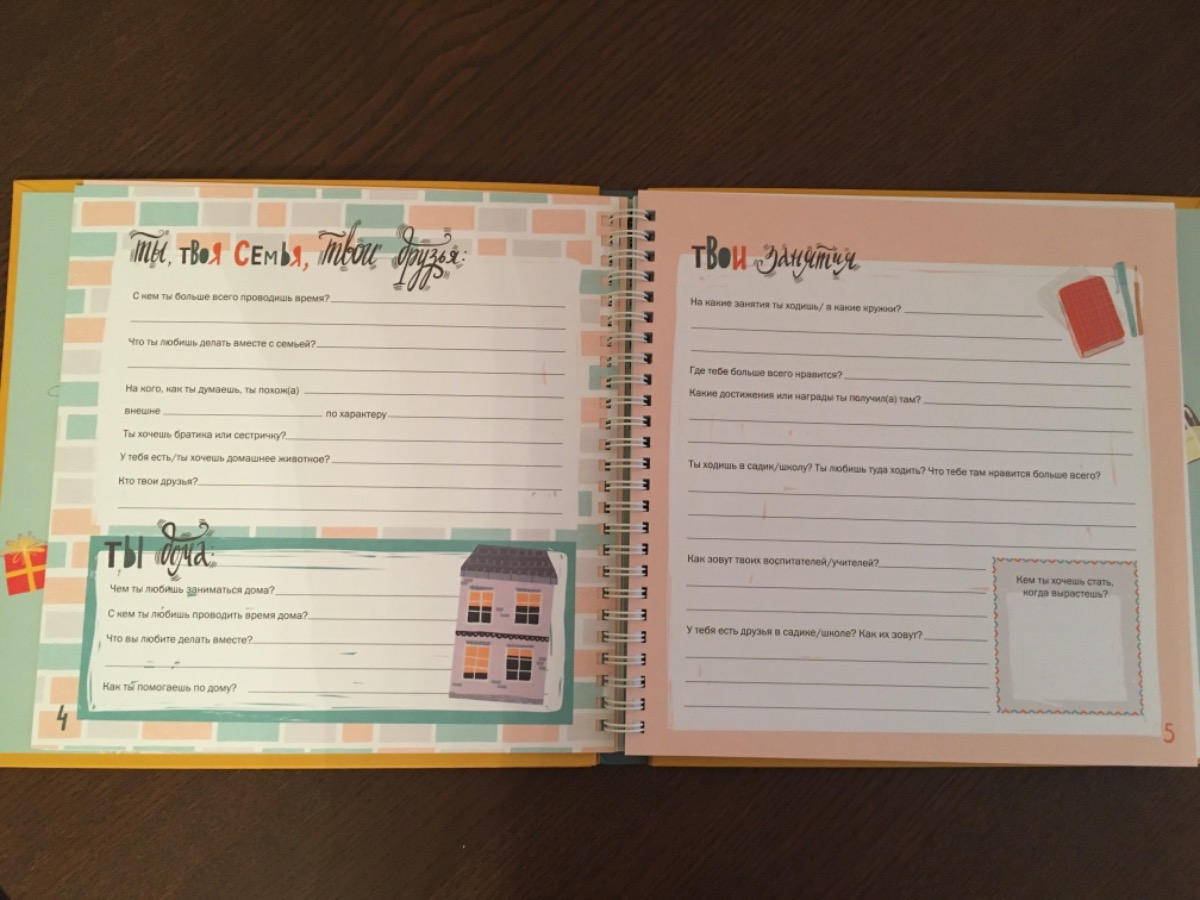 Ты, твоя семья, твои друзья:
С кем ты больше всего проводишь время?
Что ты любишь делать вместе с семьей?
На кого, как ты думаешь, ты похож(а)
внешне по характеру
Ты хочешь братика или сестричку?
У тебя есть/ты хочешь домашнее животное?
Кто твои друзья?
Ты дома:
Чем ты любишь заниматься дома?
С кем ты любишь проводить время дома?
Что вы любите делать вместе?
Как ты помогаешь по дому?
4
Твои занятия
На какие занятия ты ходишь/ в какие кружки?
Где тебе больше всего нравится?
Какие достижения или награды ты получил(а) там?
Ты ходишь в садик/школу? Ты любишь туда ходить? Что тебе там нравится больше всего?
Как зовут твоих воспитателей/учителей?
Кем ты хочешь стать,
когда вырастешь?
У тебя есть друзья в садике/школе? Как их зовут?
5